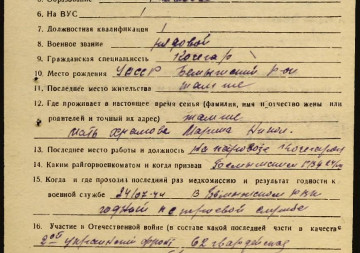 6. На ВУС /
7. Должностная квалификация /
8. Военное звание рядовой
9. Гражданская специальность Кочегар
10. Место рождения УАССР р-он
11. Последнее место жительства там же
12. Где проживает в настоящее время семья (фамилия, имя и отчество жены или
родителей и точный их адрес) там же
мать Храмова Марина
13. Последнее место работы и должность на паровозе Кочегаром
14. Каким райгорвоенкоматом и когда призван
15. Когда и где проходил последний раз медкомиссию и результат годности к
военной службе 24/07-44 в РВК
годный к строевой службе
16. Участие в Отечественной войне (в составе какой последней части в качест
2ой украинский фронт, 62 гвардейская